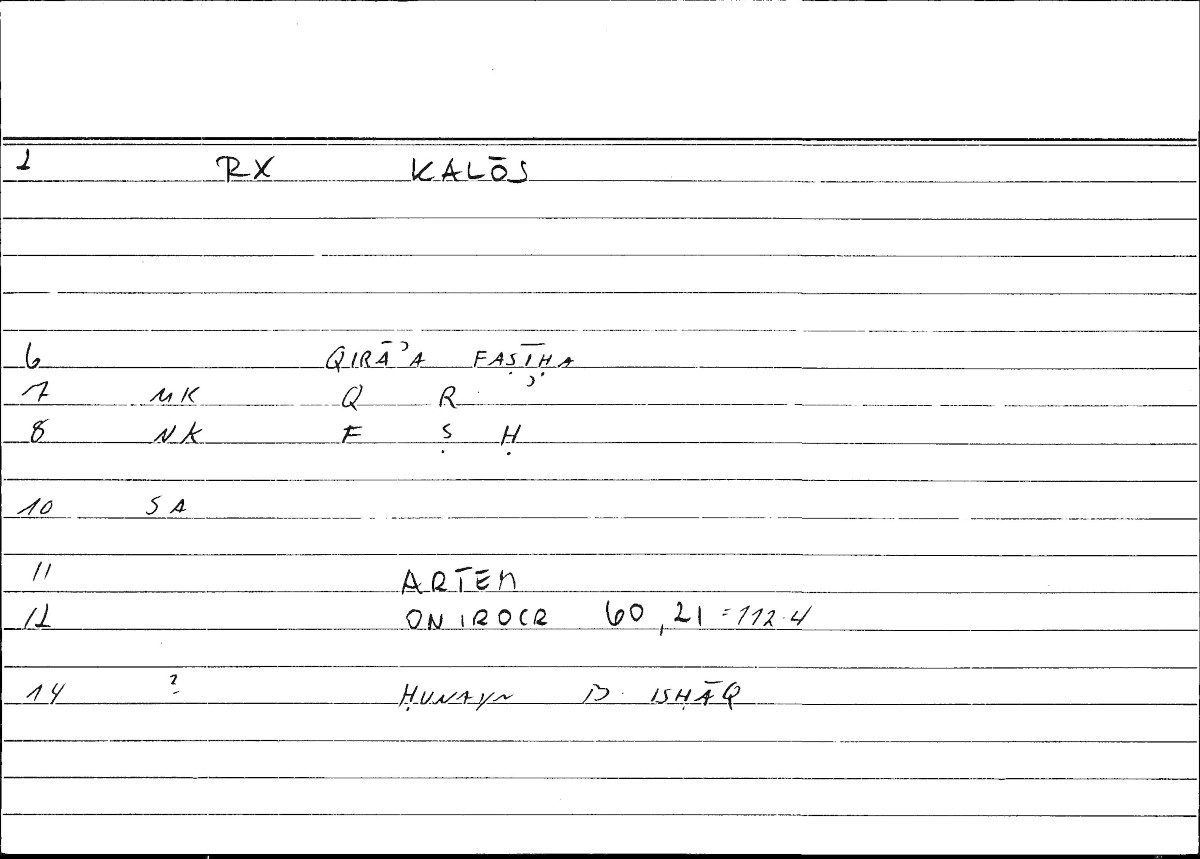 1 RX KALŌS
6 QIRĀʾA FAṢĪḤA
7 MK Q R ʾ
8 NK F Ṣ Ḥ
10 SA
11 ARTEM
12 ONIROCR 60,21 = 112.4
14 ? ḤUNAYN B. ISḤĀQ